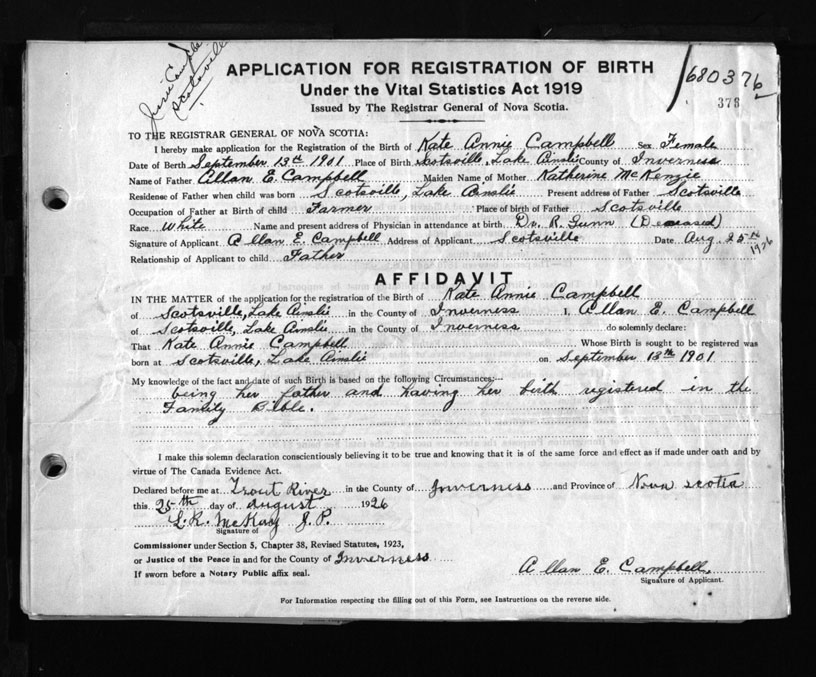 Jessie Campbell
Scotsville
680376
378
APPLICATION FOR REGISTRATION OF BIRTH
Under the Vital Statistics Act 1919
Issued by The Registrar General of Nova Scotia.
TO THE REGISTRAR GENERAL OF NOVA SCOTIA:
I hereby make application for the Registration of the Birth of Kate Annie Campbell Sex Female
Date of Birth September 13th 1901 Place of Birth Scotsville, Lake Ainslie County of Inverness
Name of Father Allan E. Campbell Maiden Name of Mother Katherine McKenzie
Residence of Father when child was born Scotsville, Lake Ainslie Present address of Father Scotsville
Occupation of Father at Birth of child Farmer Place of birth of Father Scotsville
Race White Name and present address of Physician in attendance at birth Dr. R. Gunn (Deceased)
Signature of Applicant Allan E. Campbell Address of Applicant Scotsville Date Aug. 25th 1926
Relationship of Applicant to child Father
AFFIDAVIT
IN THE MATTER of the application for the registration of the Birth of Kate Annie Campbell
of Scotsville, Lake Ainslie in the County of Inverness I, Allan E. Campbell
of Scotsville, Lake Ainslie in the County of Inverness do solemnly declare:
That Kate Annie Campbell Whose Birth is sought to be registered was
born at Scotsville, Lake Ainslie on September 13th 1901
My knowledge of the fact and date of such Birth is based on the following Circumstances:—
being her father and having her birth registered in the
Family Bible.
I make this solemn declaration conscientiously believing it to be true and knowing that it is of the same force and effect as if made under oath and by
virtue of The Canada Evidence Act.
Declared before me at Trout River in the County of Inverness and Province of Nova Scotia
this 25th day of August 1926
L. R. McKay J. P.
Signature of
Commissioner under Section 5, Chapter 38, Revised Statutes, 1923,
or Justice of the Peace in and for the County of Inverness
If sworn before a Notary Public affix seal.
Allan E. Campbell.
Signature of Applicant.
For Information respecting the filling out of this Form, see Instructions on the reverse side.